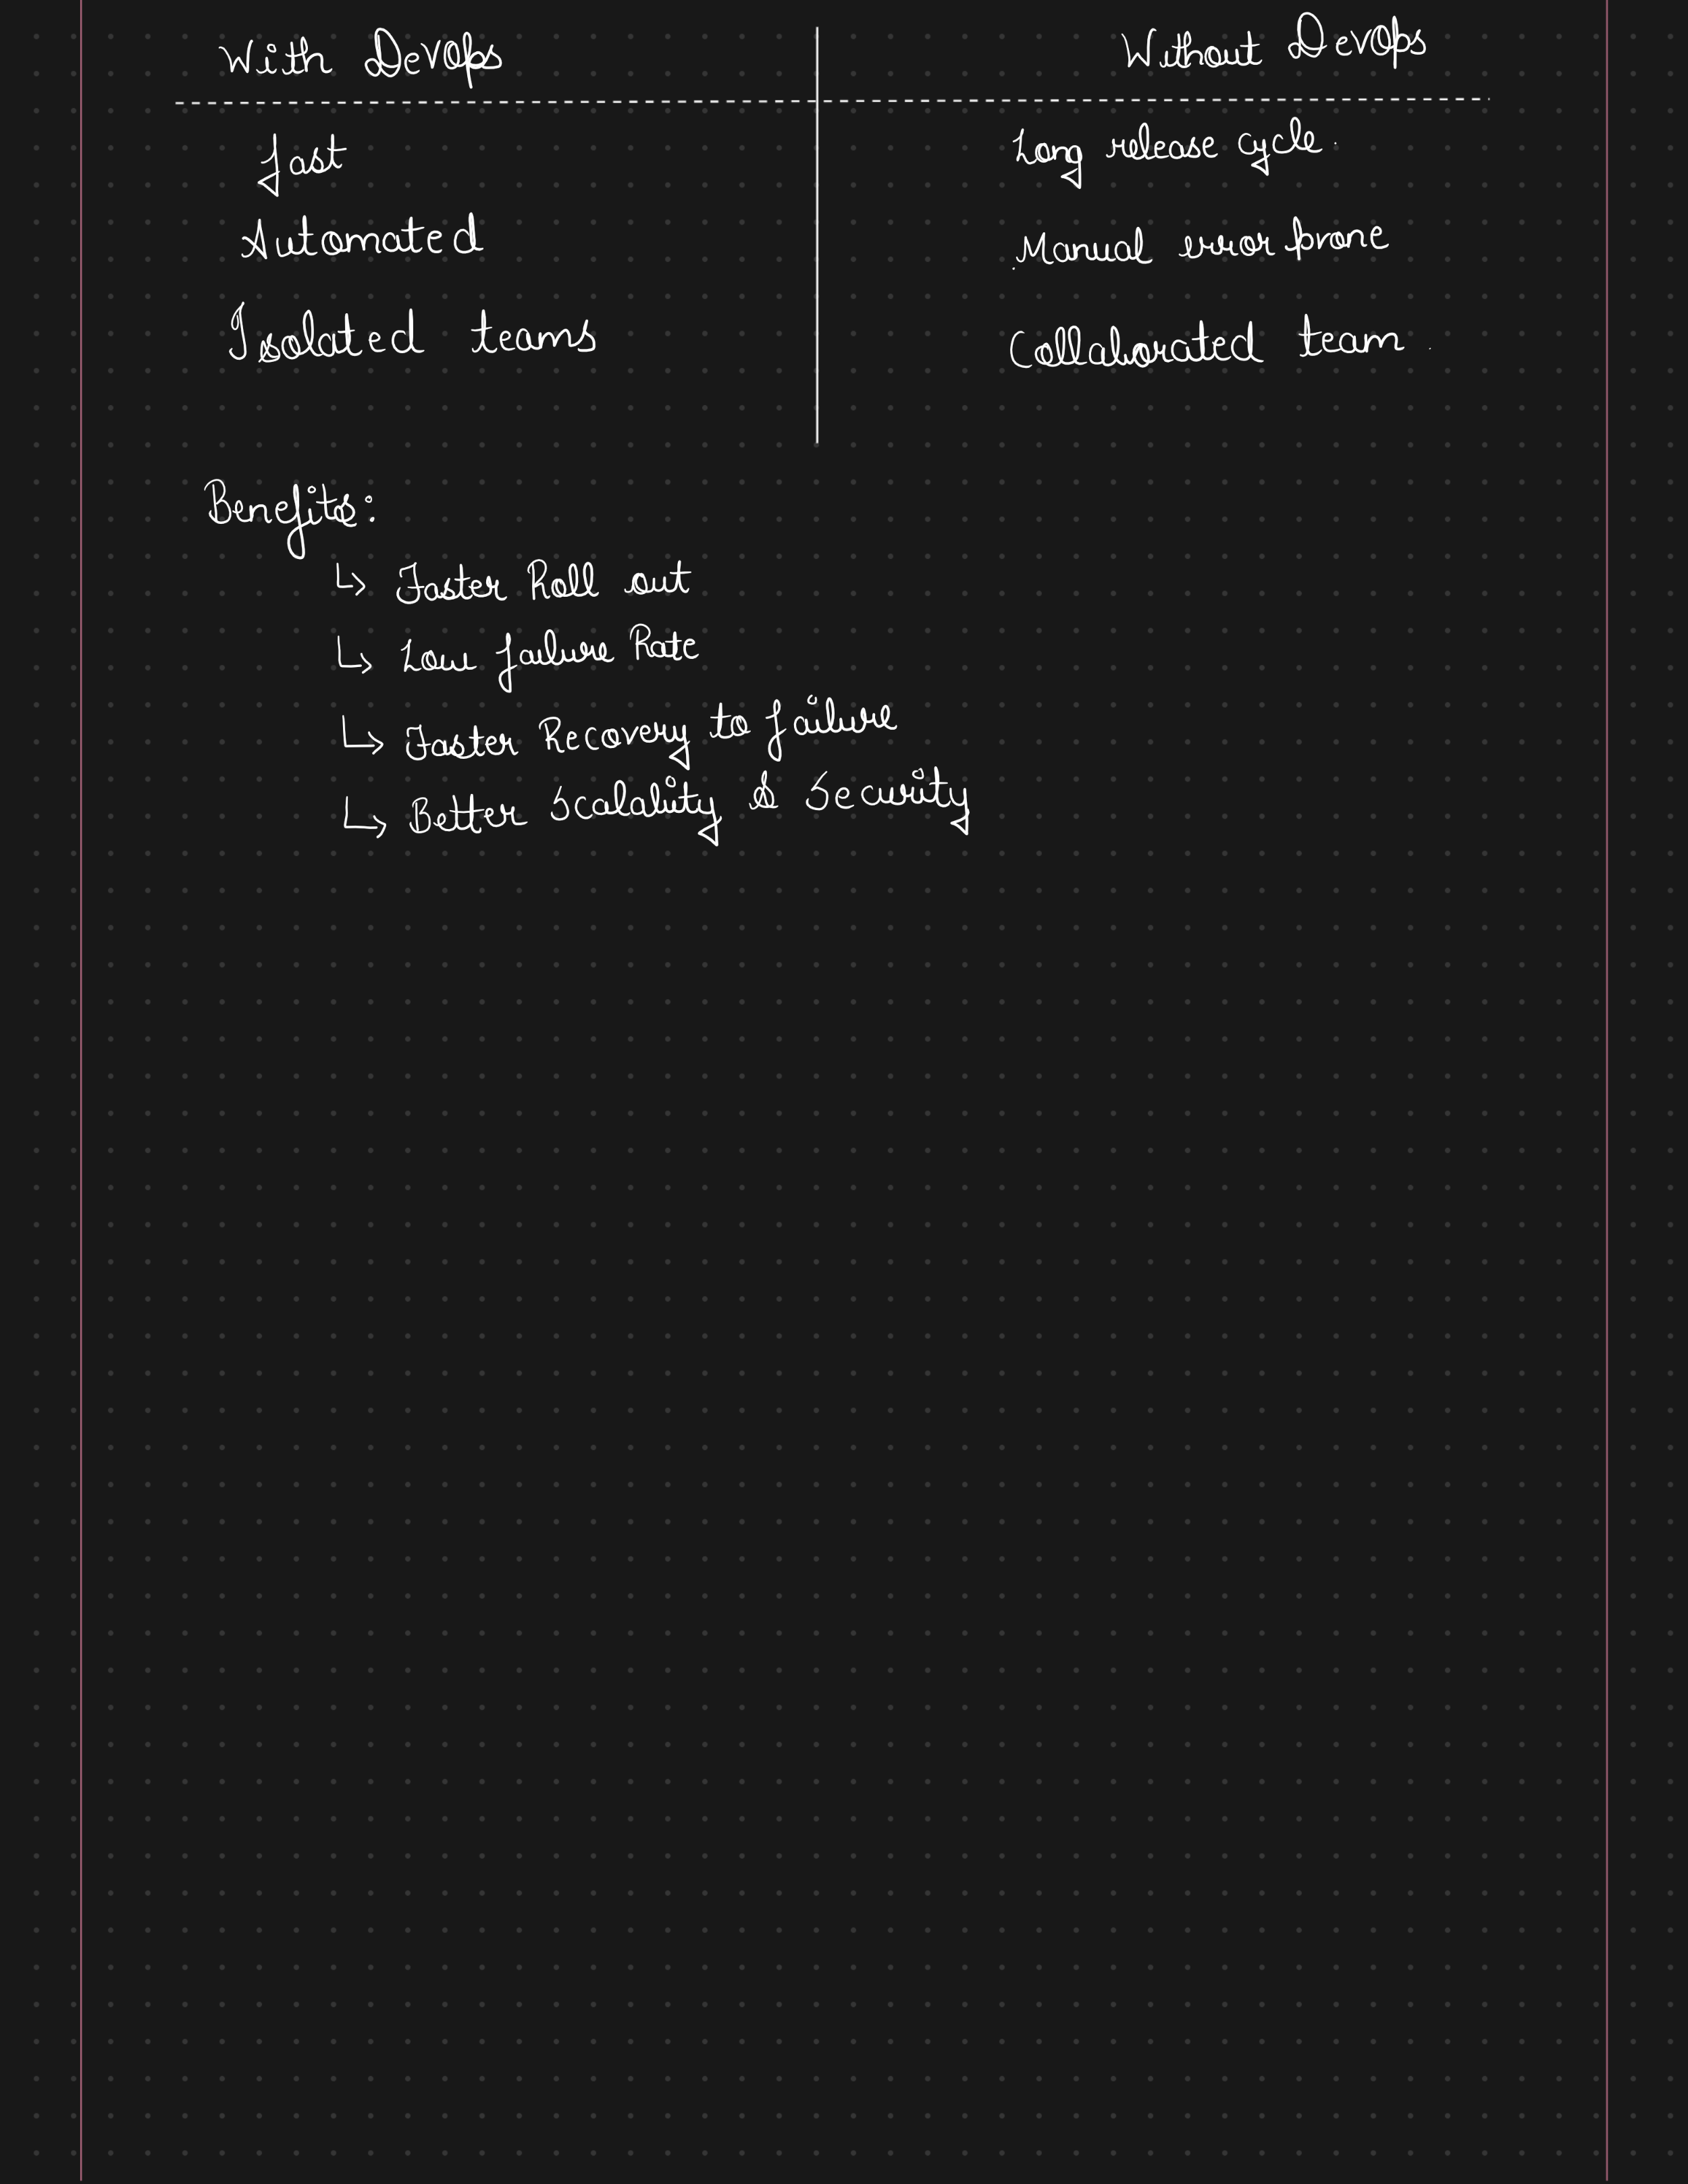 With DevOps Without DevOps
fast Long release cycle.
Automated Manual error prone
Isolated teams Collaborated team
Benefits:
↳ Faster Roll out
↳ Low failure Rate
↳ Faster Recovery to failure
↳ Better Scalability & Security